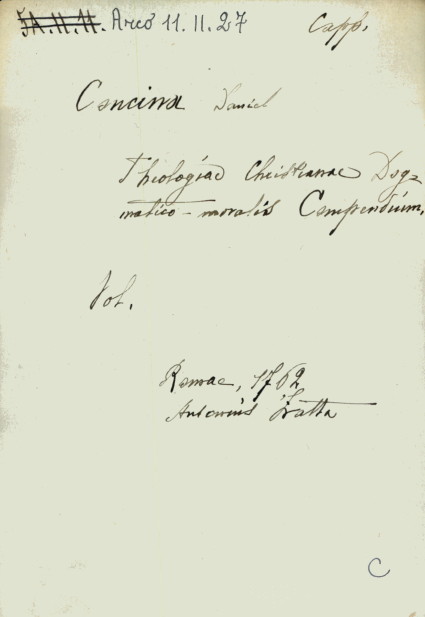 5A.11.11. Arcò 11.11.27 Capp.
Concina Daniel
Theologiae Christianae Dog-
matico-moralis Compendium.
Vol.
Romae, 1762
Antonius Zatta
C